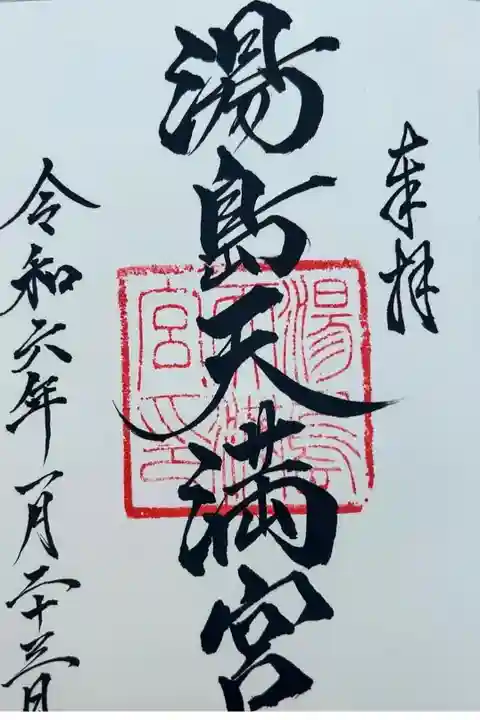 奉拝
湯島天満宮
湯島
天満
宮印
令和六年一月二十三日